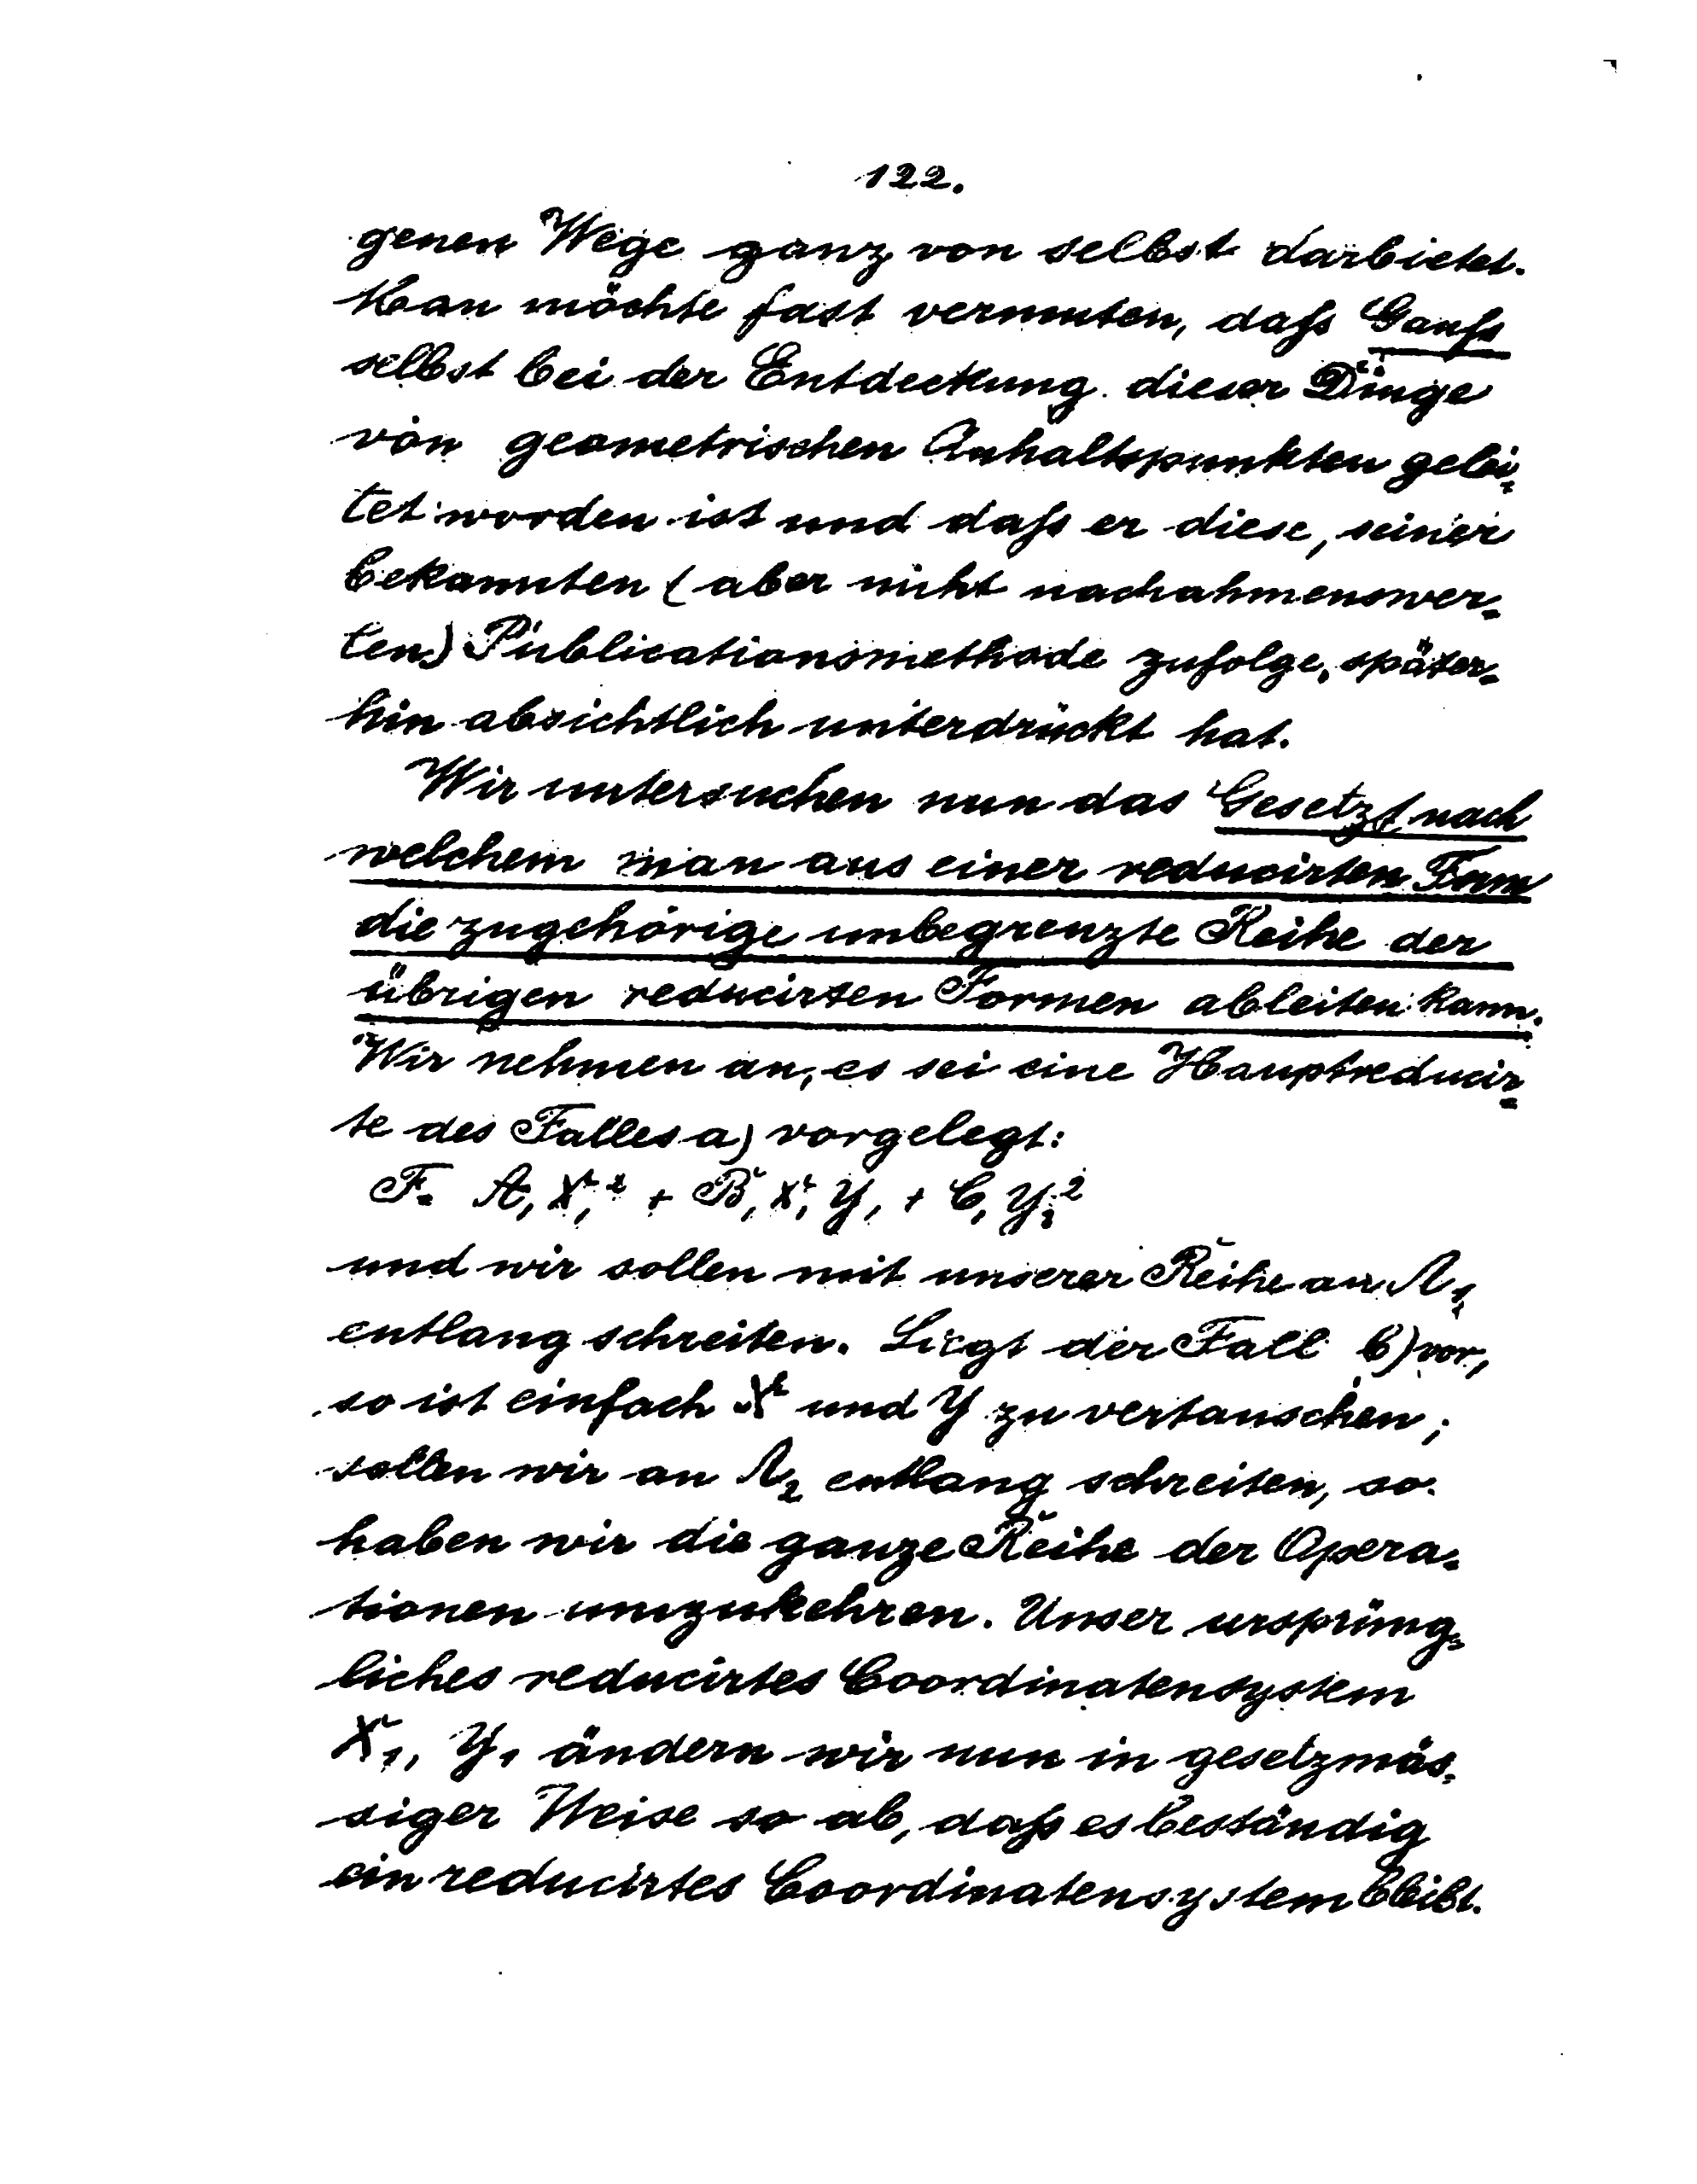 122.
genen Wege ganz von selbst darbietet.
Man möchte fast vermuten, daſs Gauſs
selbst bei der Entdeckung dieser Dinge
von geometrischen Anhaltspunkten gelei-
tet worden ist und daſs er diese, seiner
bekannten (aber nicht nachahmenswer-
ten) Publicationsmethode zufolge, später-
hin absichtlich unterdrückt hat.
Wir untersuchen nun das Gesetz, nach
welchem man aus einer reducirten Form
die zugehörige unbegrenzte Reihe der
übrigen reducirten Formen ableiten kann.
Wir nehmen an, es sei eine Hauptreducir-
te des Falles a) vorgelegt:
F = A₁ X₁² + B₁ X₁ Y₁ + C₁ Y₁²
und wir sollen mit unserer Reihe an Λ₁
entlang schreiten. Liegt der Fall b) vor,
so ist einfach X und Y zu vertauschen;
sollen wir an Λ₂ entlang schreiten, so
haben wir die ganze Reihe der Opera-
tionen umzukehren. Unser ursprüng-
liches reducirtes Coordinatensystem
X₁, Y₁ ändern wir nun in gesetzmäs-
siger Weise so ab, daſs es beständig
ein reducirtes Coordinatensystem bleibt.